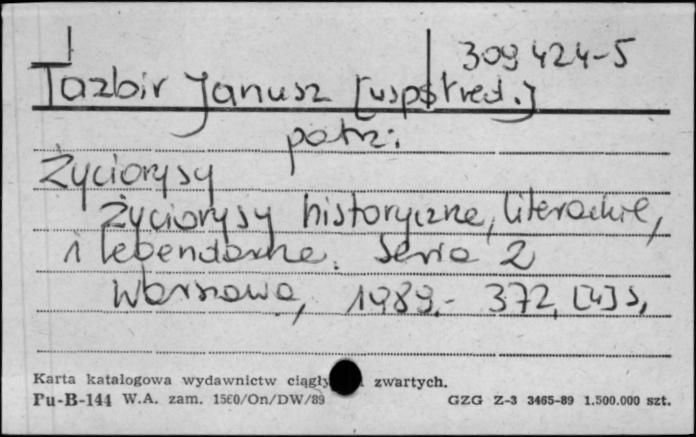 309 424-5
Tazbir Janusz [współred.]
patrz:
Życiorysy
Życiorysy historyczne, literackie,
i legendarne. Seria 2
Warszawa, 1989.- 372, [4] s,
Karta katalogowa wydawnictw ciągły zwartych.
Pu-B-144 W.A. zam. 1560/On/DW/89 GZG Z-3 3465-89 1.500.000 szt.